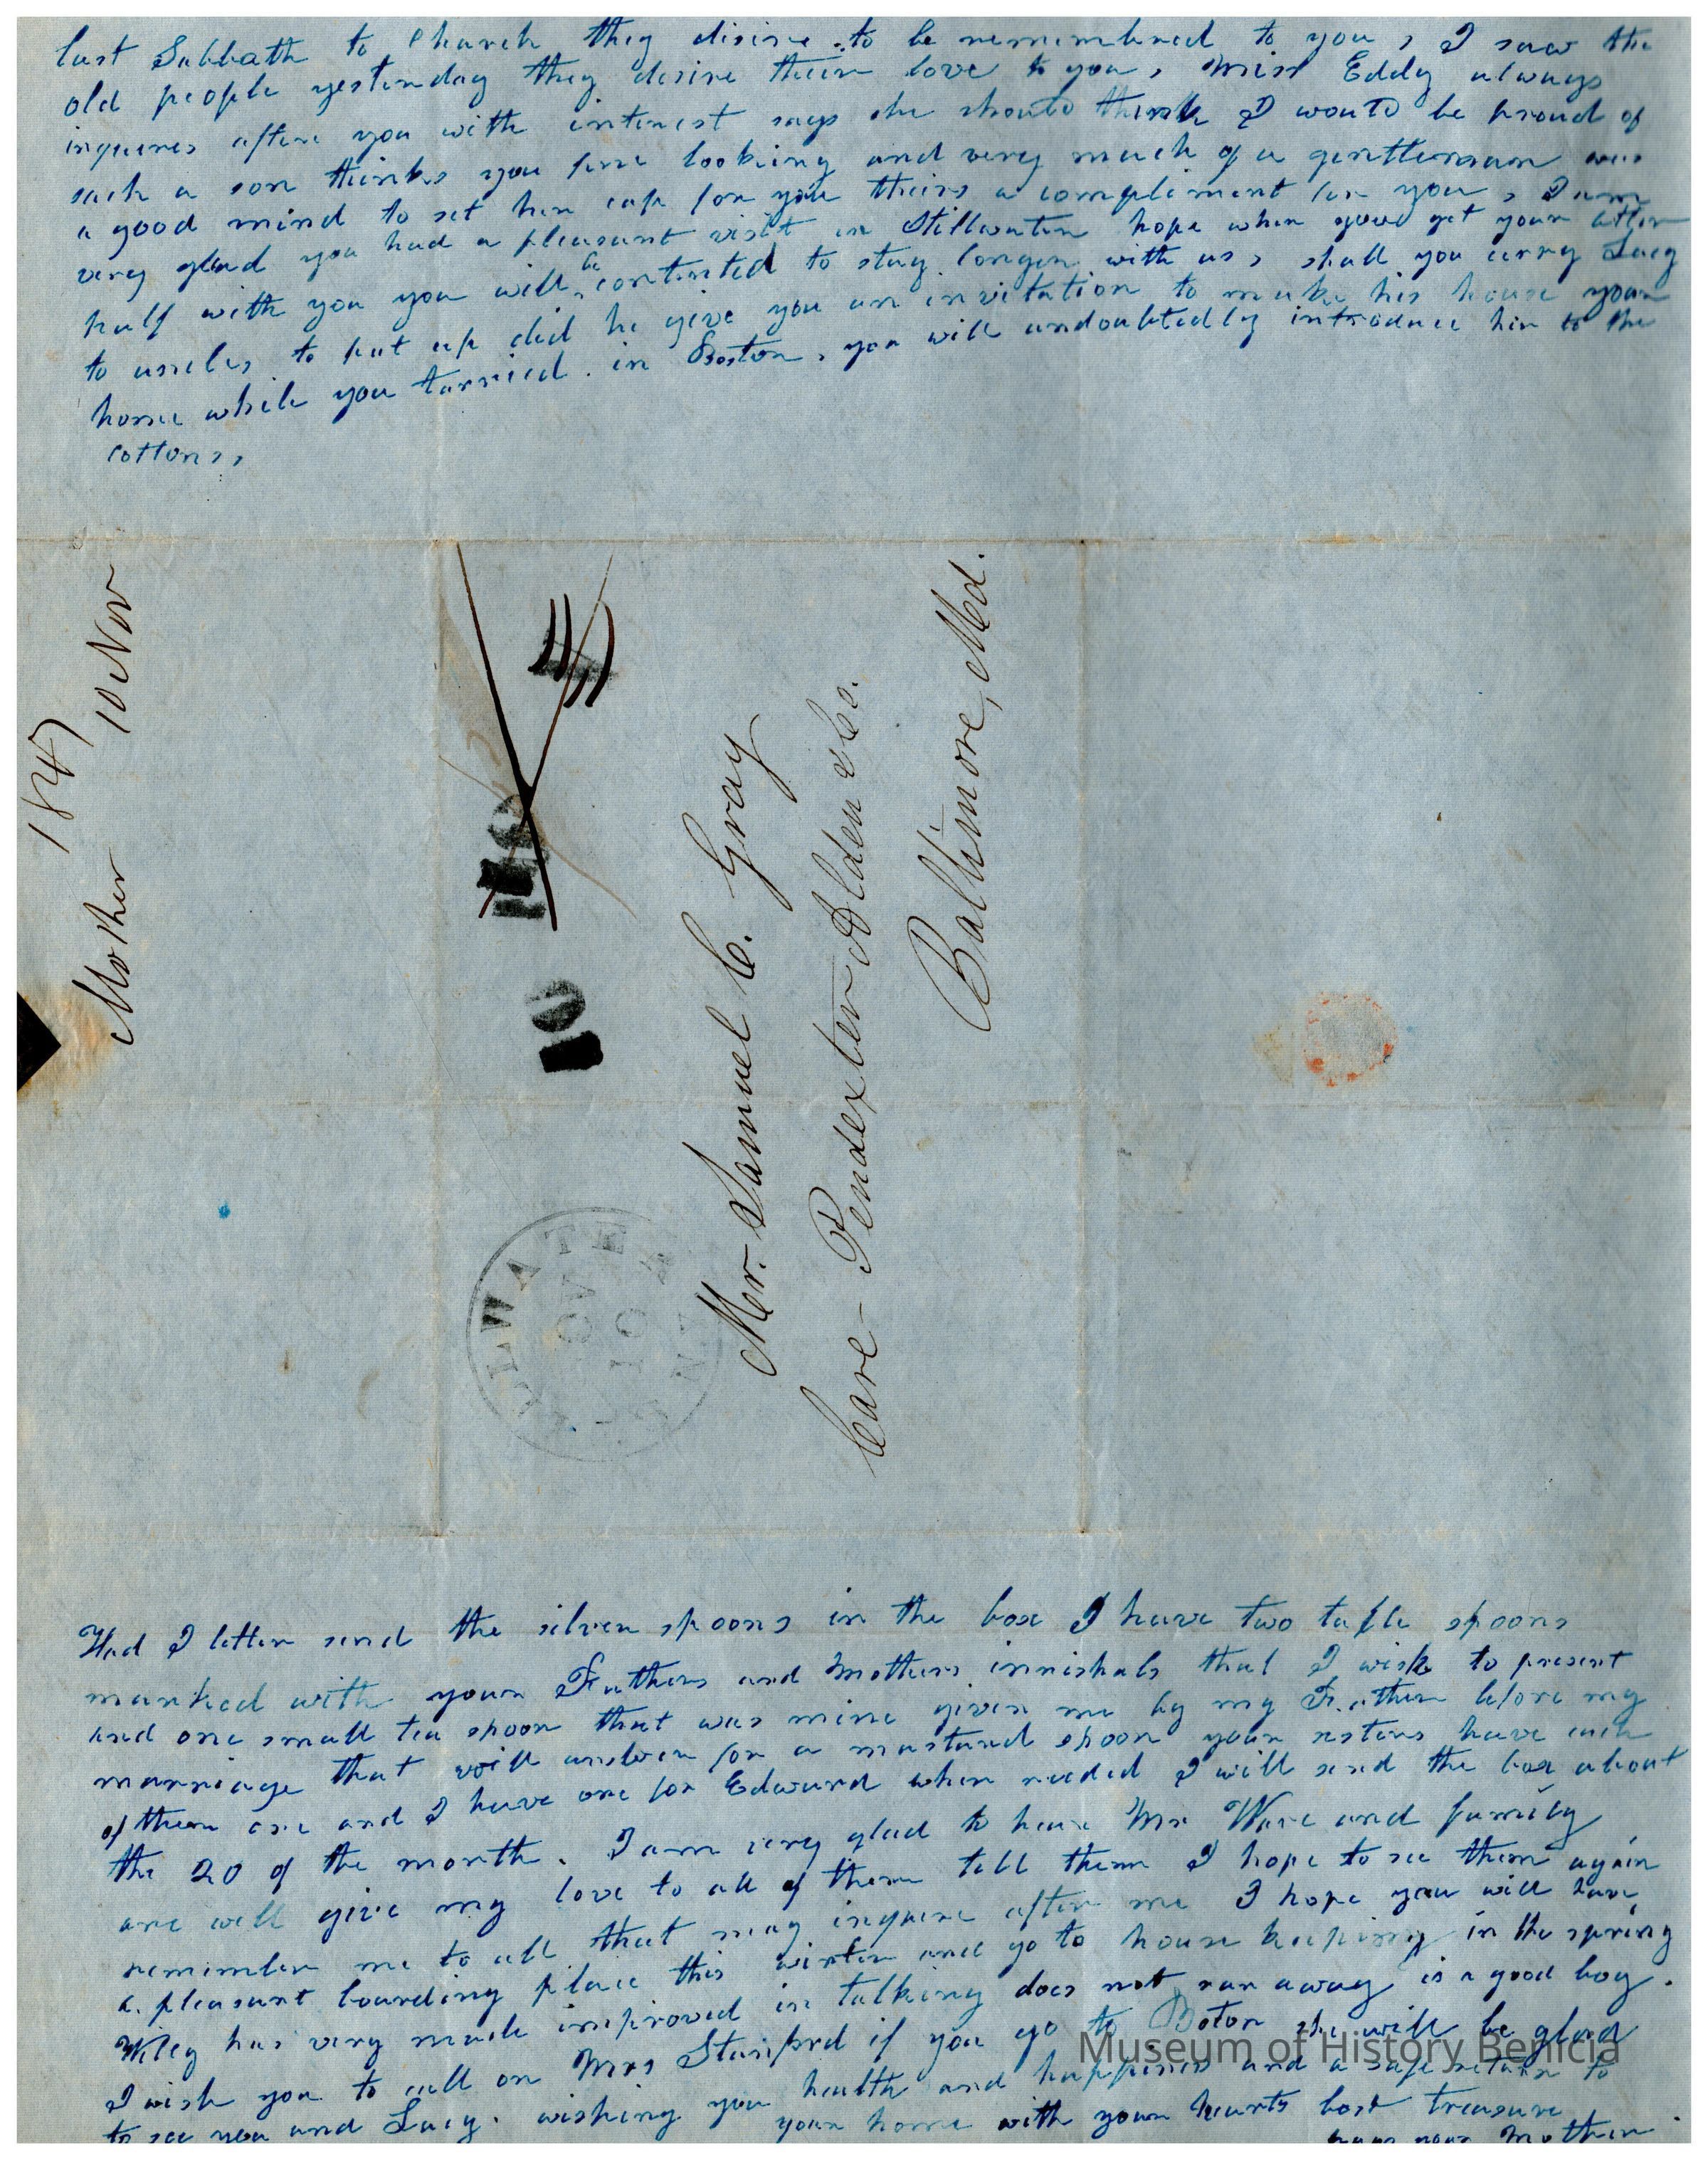 last Sabbath to Church they disire to be remembered to you, I saw the
old people yesterday they desire their love to you, Miss Eddy always
inqueres after you with interest says she should think I would be proud of
such a son thinks you fine looking and very much of a gentleman was
a good mind to set her cap for you theirs a compliment for you, I am
very glad you had a pleasant visit in Stillwater hope when you get your better
half with you you will be contented to stay longer with us, shall you carry Lucy
to uncles to put up did he give you an invitation to make his house your
home while you tarried in Boston, you will undoubtedly introduce her to the
cottons,,
1847
Mother 10 Nov
10
10
Mr. Samuel C. Gray
Care Pendexter Alden & Co.
Baltimore, Md.
LLWATER
NOV
10
N.Y.
Had I better send the silver spoons in the box I have two table spoons
marked with your Fathers and Mothers innishals that I wish to present
and one small tea spoon that was mine given me by my Father before my
marriage that will answer for a mustard spoon your sisters have each
of them one and I have one for Edward when needed I will send the box about
the 20 of the month. I am very glad to hear Mr Ware and family
are well give my love to all of them tell them I hope to see them again
remember me to all that may inquere after me I hope you will have
a pleasant boarding place this winter and go to house keeping in the spring
Wiley has very much improved in talking does not run away is a good boy.
I wish you to call on Mrs Stanford if you go to Boton she will be glad
to see you and Lucy. wishing you health and happiness and a safe return to
your home with your hearts best treasure
your Mother
Museum of History Benicia